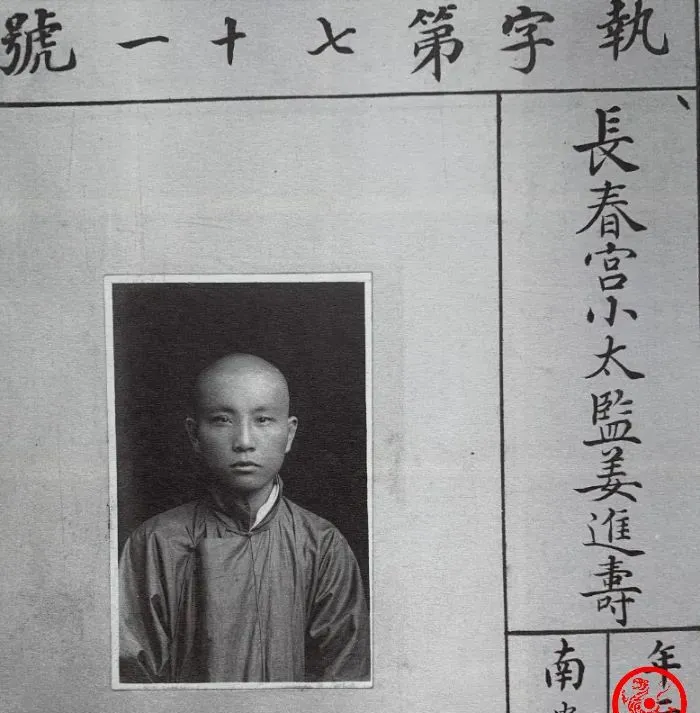 執字第七十一號
長春宮小太監姜進壽
年
南